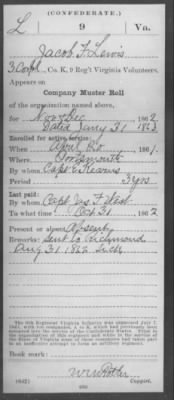 (CONFEDERATE.)
L 9 Va.
Jacob F Lewis
3 Corpl, Co. K, 9 Reg't Virginia Volunteers.
Appears on
Company Muster Roll
of the organization named above,
for Nov & Dec, 1862
Dated Jany 31 1863
Enlisted for active service:
When April 20, 1861.
Where Portsmouth
By whom Capt Kearns
Period 3 yrs
Last paid:
By whom Capt Jas F West
To what time Oct 31, 1862
Present or absent Absent
Remarks: Sent to Richmond
Aug 31 1862 Sick
The 9th Regiment Virginia Infantry was
Book mark:
(642)
Copyist.